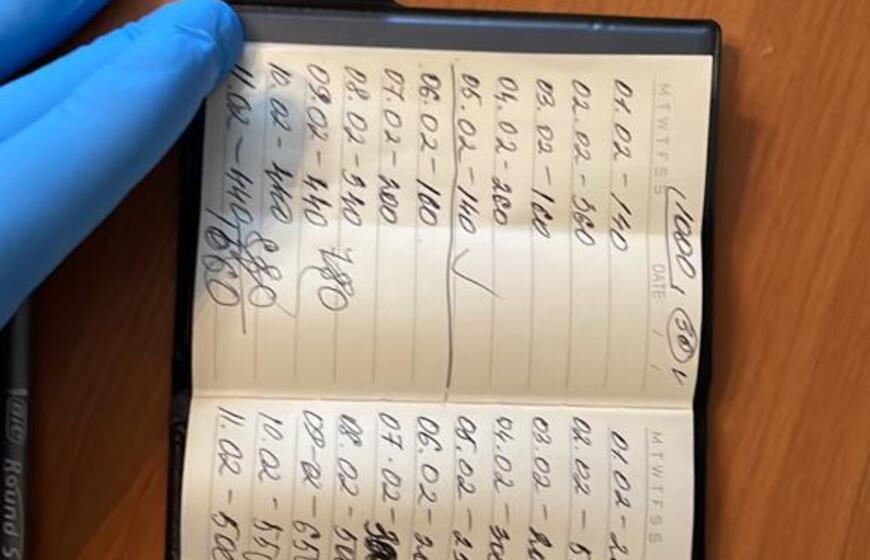 1000 30
M T W T F S S DATE / /
01.02 - 140
02.02 - 360
03.02 - 160
04.02 - 260
05.02 - 140 ✓
06.02 - 160
07.02 - 200
08.02 - 340
09.02 - 440
10.02 - 440
11.02 - 440
1660
M T W T F S S
01.02 - 2
02.02 - 5
03.02 -
04.02 - 300
05.02 - 2
06.02 -
07.02 -
08.02 - 50
09.02 - 650
10.02 - 55
11.02 - 500
Round S